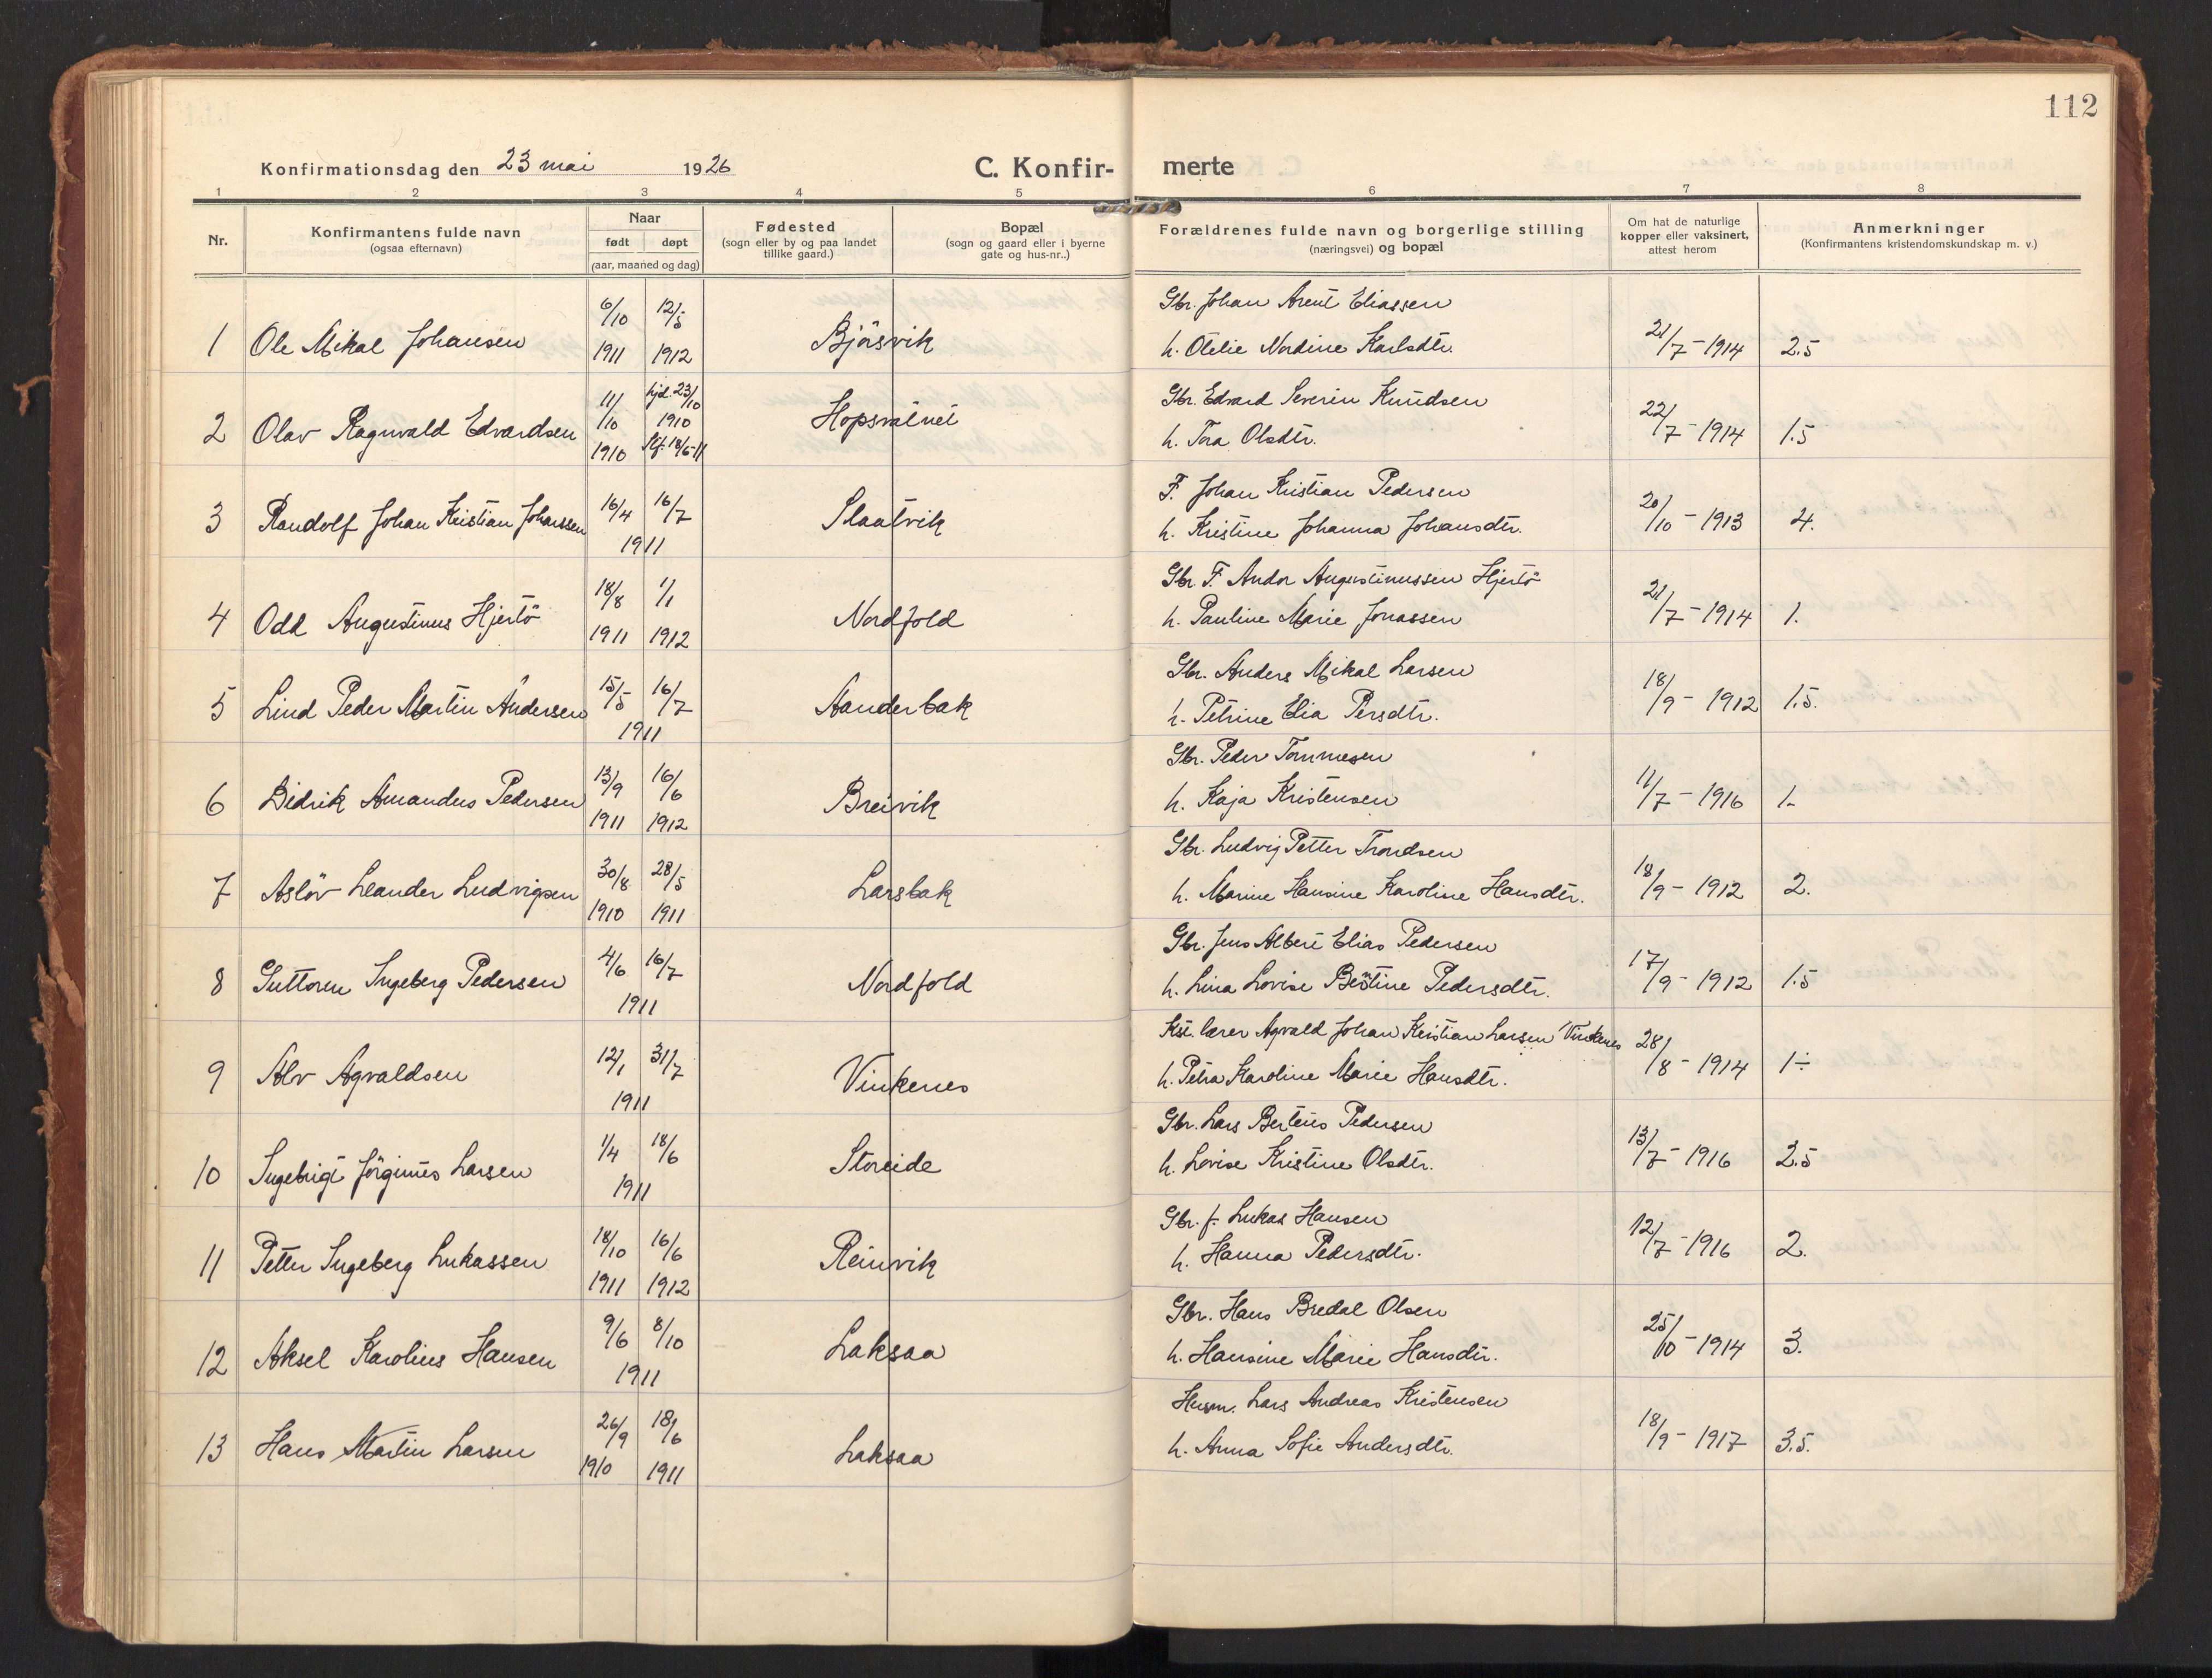 112
Konfirmationsdag den 23 mai 1926 C. Konfirmerte
1 2 3 4 5 6 7 8
Nr. Konfirmantens fulde navn (ogsaa efternavn) Naar født døpt (aar, maaned og dag) Fødested (sogn eller by og paa landet tillike gaard.) Bopæl (sogn og gaard eller i byerne gate og hus-nr..) Forældrenes fulde navn og borgerlige stilling (næringsvei) og bopæl Om hat de naturlige kopper eller vaksinert, attest herom Anmerkninger (Konfirmantens kristendomskundskap m. v.)
6/10 12/5 Gbr. Johan Arent Eliassen
1 Ole Mikal Johansen 1911 1912 Bjørsvik h. Otelie Nordine Karlsdtr. 21/7-1914 2.5
11/10 hjd. 23/10 1910 Gbr. Edvard Severin Knudsen
2 Olav Ragnvald Edvardsen 1910 Stf. 18/6-11 Hopsvatnet h. Tora Olsdtr. 22/7-1914 1.5
16/4 16/7 F. Johan Kristian Pedersen
3 Randolf Johan Kristian Johanssen 1911 Slaatvik h. Kristine Johanna Johansdtr. 20/10-1913 4.
18/8 1/1 Gbr. F. Andor Augustinussen Hjertö
4 Odd Augustinus Hjertö 1911 1912 Nordfold h. Pauline Marie Jonassen 21/7-1914 1.
15/5 16/7 Gbr. Anders Mikal Larsen
5 Lind Peder Martin Andersen 1911 Aanderbak h. Petrine Elia Persdtr. 18/9-1912 1.5.
13/9 16/6 Gbr. Peder Tommesen
6 Didrik Amandus Pedersen 1911 1912 Breivik h. Kaja Kristensen 11/7-1916 1-
30/8 28/5 Gbr. Ludvig Petter Trondsen
7 Aslöv Leander Ludvigsen 1910 1911 Larsbak h. Marine Hansine Karoline Hansdtr. 18/9-1912 2.
4/6 16/7 Gbr. Jens Albert Elias Pedersen
8 Guttorm Ingeberg Pedersen 1911 Nordfold h. Lina Lovise Bertine Pedersdtr. 17/9-1912 1.5
12/1 31/7 Kst. lærer Agvald Johan Kristian Larsen Vinkenes
9 Alv Agvaldsen 1911 Vinkenes h. Petra Karoline Marie Hansdtr. 28/8-1914 1÷
1/4 18/6 Gbr. Lars Berteus Pedersen
10 Ingebrigt Jörginus Larsen 1911 Storeide h. Lovise Kristine Olsdtr. 13/7-1916 2.5
18/10 16/6 Gbr. f. Lukas Hansen
11 Petter Ingeberg Lukassen 1911 1912 Reinvik h. Hanna Pedersdtr. 12/7-1916 2.
9/6 8/10 Gbr. Hans Bredal Olsen
12 Aksel Karolius Hansen 1911 Laksaa h. Hansine Marie Hansdtr. 25/10-1914 3.
26/9 18/6 Husm. Lars Andreas Kristensen
13 Hans Martin Larsen 1910 1911 Laksaa h. Anna Sofie Andersdtr. 18/9-1917 3.5.